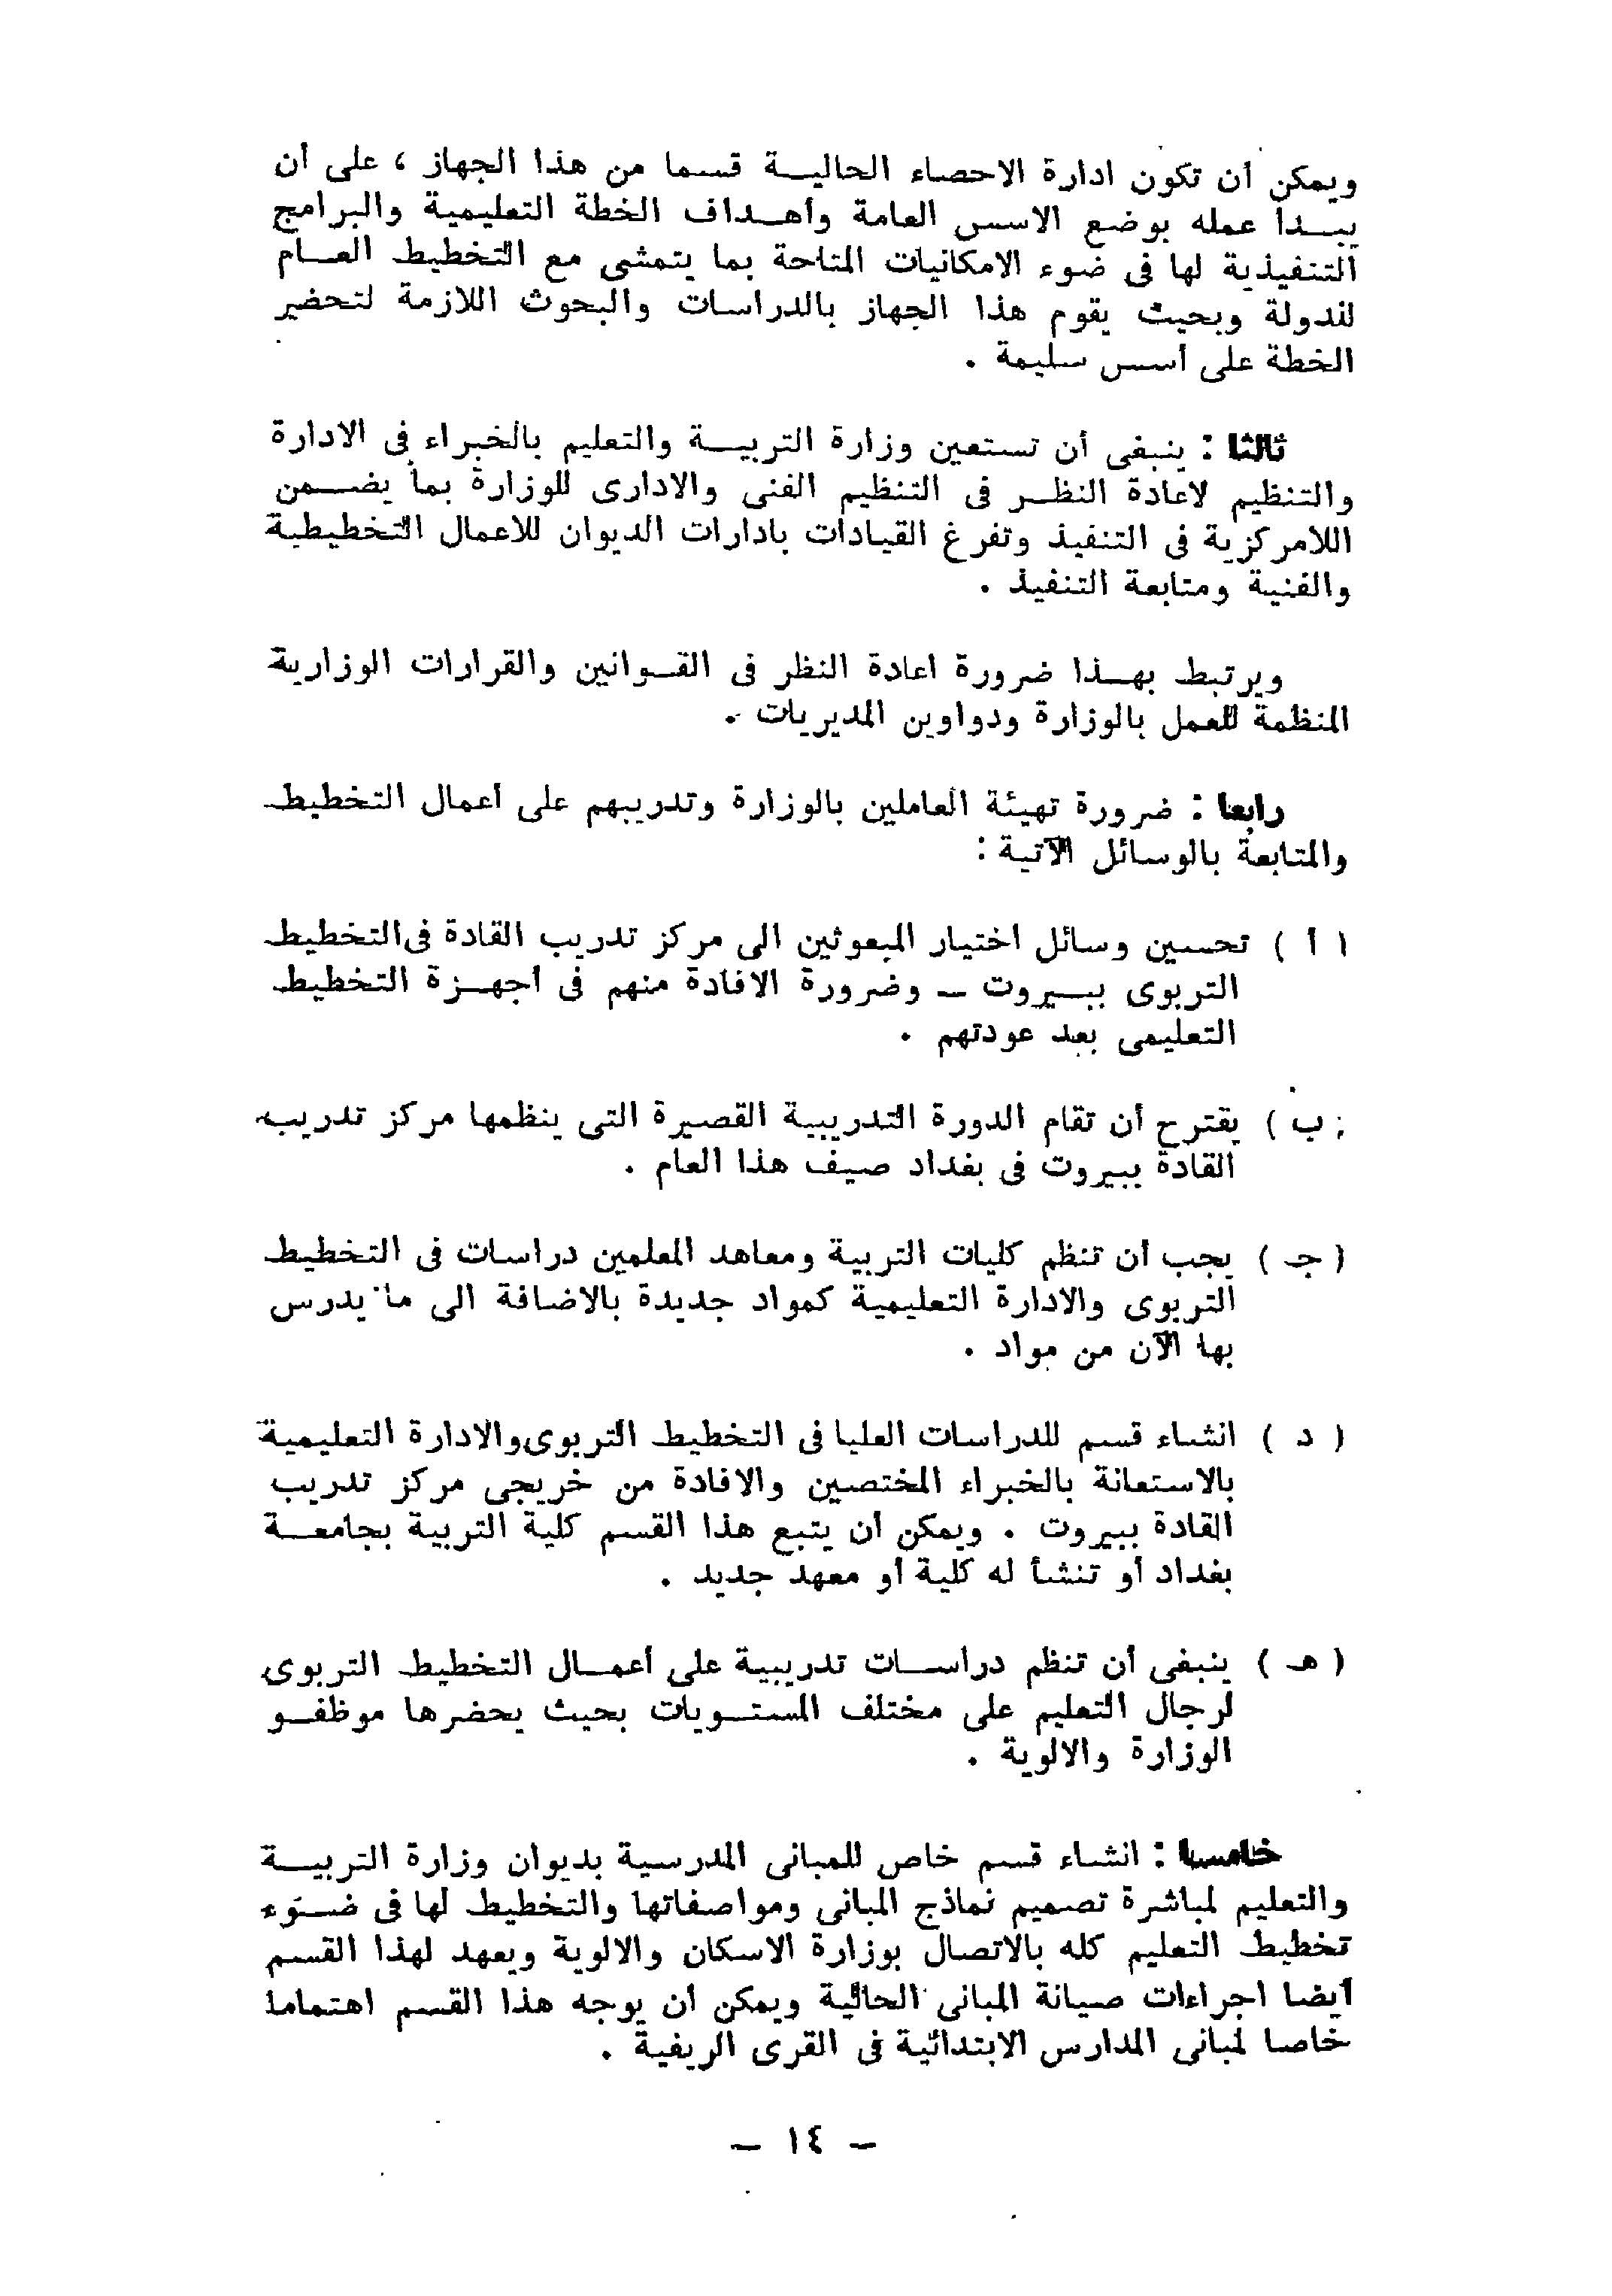 ويمكن أن تكون ادارة الاحصاء الحالية قسما من هذا الجهاز ، على أن
يبدأ عمله بوضع الاسس العامة وأهداف الخطة التعليمية والبرامج
التنفيذية لها فى ضوء الامكانيات المتاحة بما يتمشى مع التخطيط العام
للدولة وبحيث يقوم هذا الجهاز بالدراسات والبحوث اللازمة لتحضير
الخطة على أسس سليمة .
ثالثا : ينبغى أن تستعين وزارة التربية والتعليم بالخبراء فى الادارة
والتنظيم لاعادة النظر فى التنظيم الفنى والادارى للوزارة بما يضمن
اللامركزية فى التنفيذ وتفرغ القيادات بادارات الديوان للاعمال التخطيطية
والفنية ومتابعة التنفيذ .
ويرتبط بهذا ضرورة اعادة النظر فى القوانين والقرارات الوزارية
المنظمة للعمل بالوزارة ودواوين المديريات .
رابعا : ضرورة تهيئة العاملين بالوزارة وتدريبهم على أعمال التخطيط
والمتابعة بالوسائل الآتية :
( أ ) تحسين وسائل اختيار المبعوثين الى مركز تدريب القادة فى التخطيط
التربوى ببيروت – وضرورة الافادة منهم فى أجهزة التخطيط
التعليمى بعد عودتهم .
( ب ) يقترح أن تقام الدورة التدريبية القصيرة التى ينظمها مركز تدريب
القادة ببيروت فى بغداد صيف هذا العام .
( جـ ) يجب أن تنظم كليات التربية ومعاهد المعلمين دراسات فى التخطيط
التربوى والادارة التعليمية كمواد جديدة بالاضافة الى ما يدرس
بها الآن من مواد .
( د ) انشاء قسم للدراسات العليا فى التخطيط التربوى والادارة التعليمية
بالاستعانة بالخبراء المختصين والافادة من خريجى مركز تدريب
القادة ببيروت . ويمكن أن يتبع هذا القسم كلية التربية بجامعة
بغداد أو تنشأ له كلية أو معهد جديد .
( هـ ) ينبغى أن تنظم دراسات تدريبية على أعمال التخطيط التربوى
لرجال التعليم على مختلف المستويات بحيث يحضرها موظفو
الوزارة والالوية .
خامسا : انشاء قسم خاص للمبانى المدرسية بديوان وزارة التربية
والتعليم لمباشرة تصميم نماذج المبانى ومواصفاتها والتخطيط لها فى ضوء
تخطيط التعليم كله بالاتصال بوزارة الاسكان والالوية ويعهد لهذا القسم
أيضا اجراءات صيانة المبانى الحالية ويمكن أن يوجه هذا القسم اهتماما
خاصا لمبانى المدارس الابتدائية فى القرى الريفية .
– ١٤ –